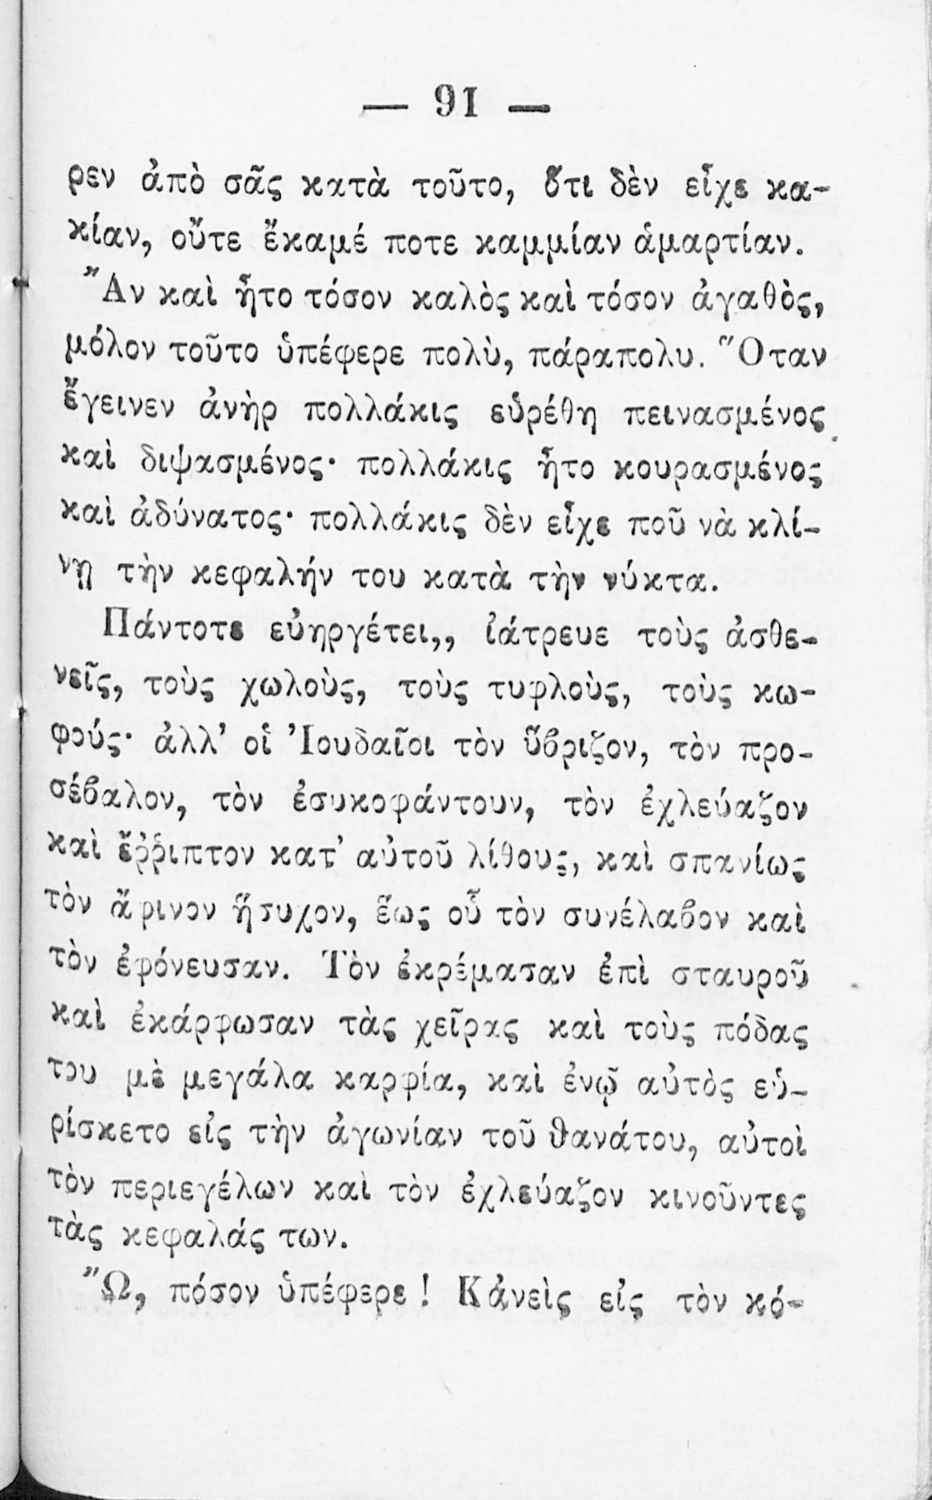 — 91 —
ρεν ἀπὸ σᾶς κατὰ τοῦτο, ὅτι δὲν εἶχε κα-
κίαν, οὔτε ἔκαμέ ποτε καμμίαν ἁμαρτίαν.
Ἂν καὶ ἦτο τόσον καλὸς καὶ τόσον ἀγαθὸς,
μόλον τοῦτο ὑπέφερε πολὺ, πάραπολυ. Ὅταν
ἔγεινεν ἀνὴρ πολλάκις εὑρέθη πεινασμένος
καὶ διψασμένος· πολλάκις ἦτο κουρασμένος
καὶ ἀδύνατος· πολλάκις δὲν εἶχε ποῦ νὰ κλί-
νῃ τὴν κεφαλήν του κατὰ τὴν νύκτα.
Πάντοτε εὐηργέτει,, ἰάτρευε τοὺς ἀσθε-
νεῖς, τοὺς χωλοὺς, τοὺς τυφλοὺς, τοὺς κω-
φούς· ἀλλ' οἱ Ἰουδαῖοι τὸν ὕβριζον, τὸν προ-
σέβαλον, τὸν ἐσυκοφάντουν, τὸν ἐχλεύαζον
καὶ ἔῤῥιπτον κατ' αὐτοῦ λίθους, καὶ σπανίως
τὸν ἄφινον ἥσυχον, ἕως οὗ τὸν συνέλαβον καὶ
τὸν ἐφόνευσαν. Τὸν ἐκρέμασαν ἐπὶ σταυροῦ
καὶ ἐκάρφωσαν τὰς χεῖρας καὶ τοὺς πόδας
του μὲ μεγάλα καρφία, καὶ ἐνῷ αὐτὸς εὑ-
ρίσκετο εἰς τὴν ἀγωνίαν τοῦ θανάτου, αὐτοὶ
τὸν περιεγέλων καὶ τὸν ἐχλεύαζον κινοῦντες
τὰς κεφαλάς των.
Ὢ, πόσον ὑπέφερε! Κἀνεὶς εἰς τὸν κό-